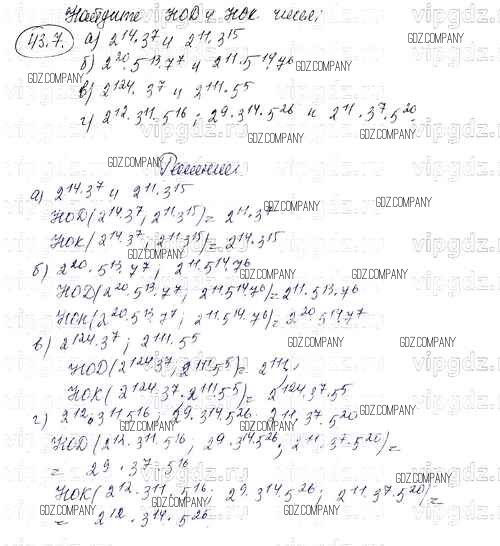 Найдите НОД и НОК чисел:
43.7. а) 2^14·3^7 и 2^11·3^15
б) 2^20·5^13·7^7 и 2^11·5^14·7^6
в) 2^124·3^7 и 2^111·5^5
г) 2^12·3^11·5^16; 2^9·3^14·5^26 и 2^11·3^7·5^20
Решение
а) 2^14·3^7 и 2^11·3^15
НОД(2^14·3^7; 2^11·3^15)=2^11·3^7
НОК(2^14·3^7; 2^11·3^15)=2^14·3^15
б) 2^20·5^13·7^7; 2^11·5^14·7^6
НОД(2^20·5^13·7^7; 2^11·5^14·7^6)=2^11·5^13·7^6
НОК(2^20·5^13·7^7; 2^11·5^14·7^6)=2^20·5^14·7^7
в) 2^124·3^7; 2^111·5^5
НОД(2^124·3^7; 2^111·5^5)=2^111
НОК(2^124·3^7·2^111·5^5)=2^124·3^7·5^5
г) 2^12·3^11·5^16; 2^9·3^14·5^26; 2^11·3^7·5^20
НОД(2^12·3^11·5^16; 2^9·3^14·5^26; 2^11·3^7·5^20)=
= 2^9·3^7·5^16
НОК(2^12·3^11·5^16; 2^9·3^14·5^26; 2^11·3^7·5^20)=
= 2^12·3^14·5^26
GDZ.COMPANY
vipgdz.ru